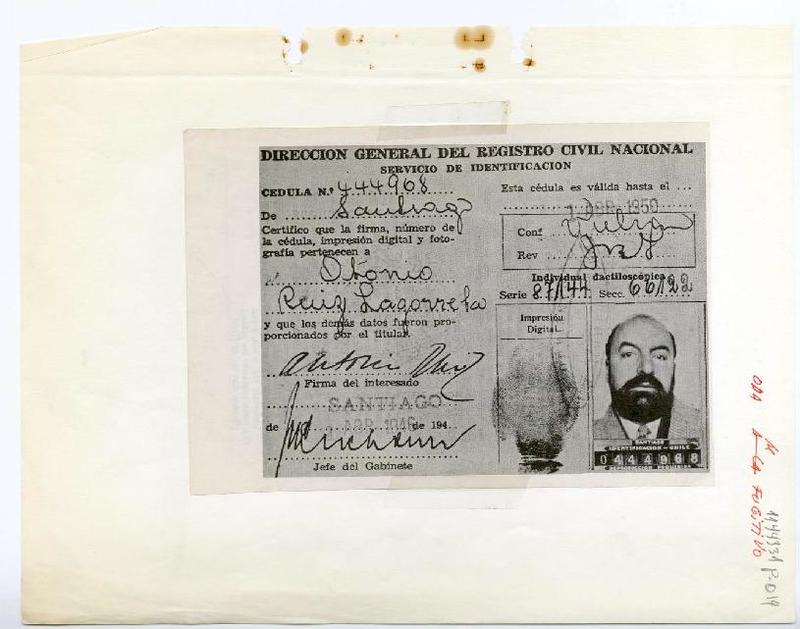 DIRECCION GENERAL DEL REGISTRO CIVIL NACIONAL
SERVICIO DE IDENTIFICACION
CEDULA N.º 444968
De Santiago
Certifico que la firma, número de
la cédula, impresión digital y foto-
grafía pertenecen a
Antonio
Ruiz Lagorreta
y que los demás datos fueron pro-
porcionados por el titular.
Antonio Ruiz
Firma del interesado
SANTIAGO
de ABR 1946 de 194
Jefe del Gabinete
Esta cédula es válida hasta el ...
ABR 1950
Conf
Rev
Individual dactiloscópica
Serie 87/144 Secc. 66/22
Impresión
Digital
SANTIAGO
IDENTIFICACION - CHILE
0444968
ODA
A UN FUGITIVO
P-014